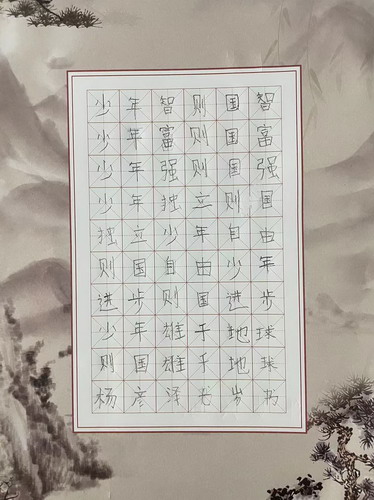 少年智则国智
少年富则国富
少年强则国强
少年独立则国
独立少年自由
则国自由少年
进步则国进步
少年雄于地球
则国雄于地球
杨彦泽 岁书